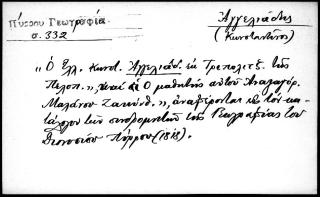 Πύρρου Γεωγραφία
σ. 332
Ἀγγελιάδης
(Κωνσταντῖνος)
„Ὁ Ἑλλ. Κωνστ. Ἀγγελιάδ. ἐκ Τριπολιτζ. τῆς
Πελοπ.„, καὶ ὁ μαθητὴς αὐτοῦ Ἀναλαγόρ.
Ζακύνθ.„, ἀναφέρονται εἰς τὸν κα-
τάλογον τῶν συνδρομητῶν τῆς Γεωγραφίας τοῦ
Διονυσίου Πύρρου (1818).